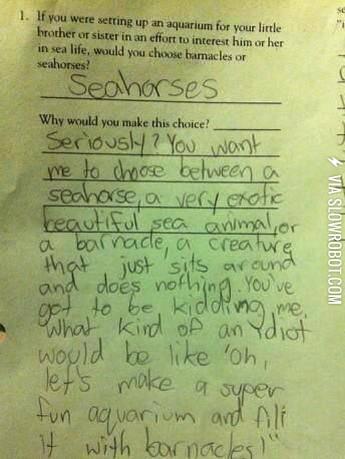 1. If you were setting up an aquarium for your little
brother or sister in an effort to interest him or her
in sea life, would you choose barnacles or
seahorses?
Seahorses
Why would you make this choice?
Seriously? You want
me to choose between a
seahorse, a very exotic
beautiful sea animal, or
a barnacle, a creature
that just sits around
and does nothing. You've
got to be kidding me.
What kind of an idiot
would be like 'oh,
let's make a super
fun aquarium and fill
it with barnacles!"
VIA SLOWROBOT.COM